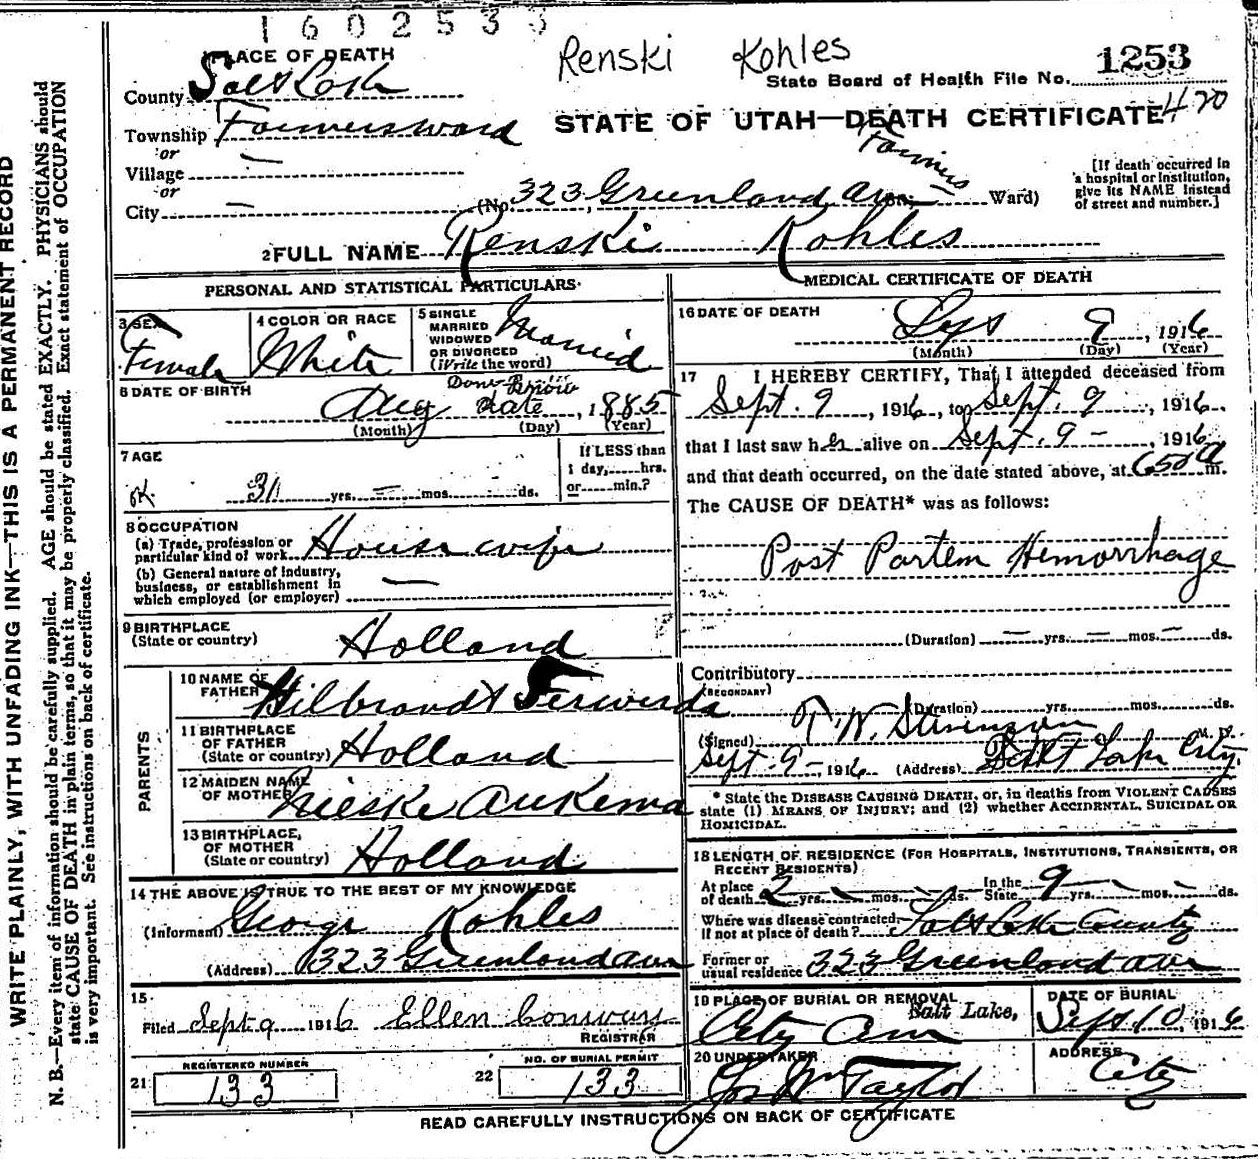 1602533
PLACE OF DEATH
Renski Kohles
State Board of Health File No. 1253
County Salt Lake
420
Township Farmersward
STATE OF UTAH—DEATH CERTIFICATE
or
Village —
or
City —
(No. 323 Greenland Ave Farmers Ward)
[If death occurred in
a hospital or institution,
give its NAME instead
of street and number.]
2 FULL NAME Renski Kohles
PERSONAL AND STATISTICAL PARTICULARS
3 SEX
Female
4 COLOR OR RACE
White
5 SINGLE
MARRIED
WIDOWED
OR DIVORCED
(Write the word)
Married
6 DATE OF BIRTH
Aug date, 1885
(Month) (Day) (Year)
7 AGE
31 yrs. — mos. - ds.
If LESS than
1 day,......hrs.
or......min.?
8 OCCUPATION
(a) Trade, profession or
particular kind of work House wife
(b) General nature of Industry,
business, or establishment in
which employed (or employer) —
9 BIRTHPLACE
(State or country) Holland
PARENTS
10 NAME OF
FATHER Hilbrandt Ferwerda
11 BIRTHPLACE
OF FATHER
(State or country) Holland
12 MAIDEN NAME
OF MOTHER Nieske Aukema
13 BIRTHPLACE,
OF MOTHER
(State or country) Holland
14 THE ABOVE IS TRUE TO THE BEST OF MY KNOWLEDGE
(Informant) George Kohles
(Address) 323 Greenland ave
15
Filed Sept 9 1916 Ellen
REGISTRAR
21 REGISTERED NUMBER
133
22 NO. OF BURIAL PERMIT
133
MEDICAL CERTIFICATE OF DEATH
16 DATE OF DEATH
9, 1916
(Month) (Day) (Year)
17 I HEREBY CERTIFY, That I attended deceased from
Sept. 9, 1916, to Sept. 9, 1916.
that I last saw her alive on Sept. 9 -, 1916
and that death occurred, on the date stated above, at 650 a m.
The CAUSE OF DEATH* was as follows:
Post Partem Hemorrhage
(Duration) — yrs. — mos. — ds.
Contributory
(SECONDARY)
(Duration) yrs. mos. ds.
(Signed) Stevenson M. D.
Sept. 9 -, 1916 (Address) Salt Lake City.
* State the DISEASE CAUSING DEATH, or, in deaths from VIOLENT CAUSES
state (1) MEANS OF INJURY; and (2) whether ACCIDENTAL, SUICIDAL OR
HOMICIDAL.
18 LENGTH OF RESIDENCE (FOR HOSPITALS, INSTITUTIONS, TRANSIENTS, OR
RECENT RESIDENTS)
At place
of death 2 yrs. mos. ds.
In the
State 9 yrs. mos. ds.
Where was disease contracted,
If not at place of death? Salt Lake County
Former or
usual residence 323 Greenland ave
19 PLACE OF BURIAL OR REMOVAL
Salt Lake,
City Cem
DATE OF BURIAL
Sept 10, 1916
20 UNDERTAKER
Jos Wm Taylor
ADDRESS
City
READ CAREFULLY INSTRUCTIONS ON BACK OF CERTIFICATE
WRITE PLAINLY, WITH UNFADING INK—THIS IS A PERMANENT RECORD
N. B.—Every item of information should be carefully supplied. AGE should be stated EXACTLY. PHYSICIANS should
state CAUSE OF DEATH in plain terms, so that it may be properly classified. Exact statement of OCCUPATION
is very important. See instructions on back of certificate.